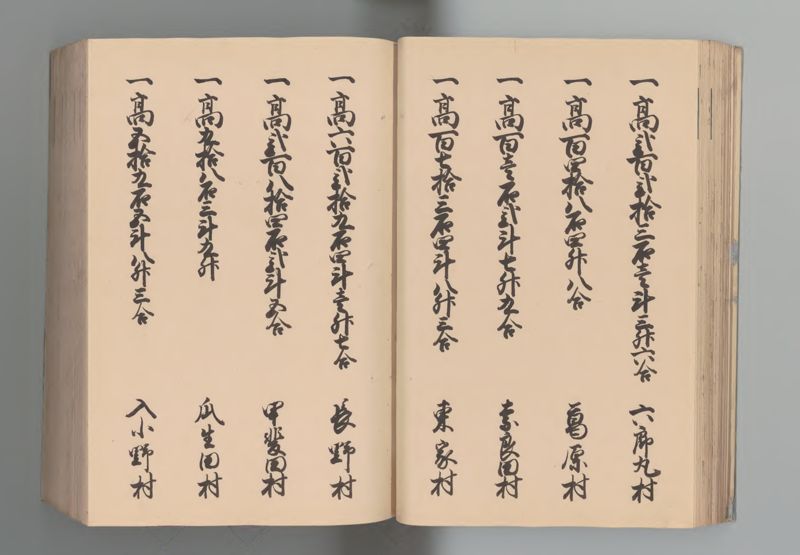 一 高弐百弐拾三石壱斗三升六合 六郎丸村
一 高百四拾八石四升八合 葛原村
一 高百壱石弐斗七升九合 奈良田村
一 高百七拾三石四斗八升三合 東家村
一 高六百弐拾九石四斗壱升七合 長野村
一 高弐百八拾四石弐斗五合 甲斐田村
一 高九拾八石三斗九升 瓜生田村
一 高五拾九石五斗八升三合 入小野村